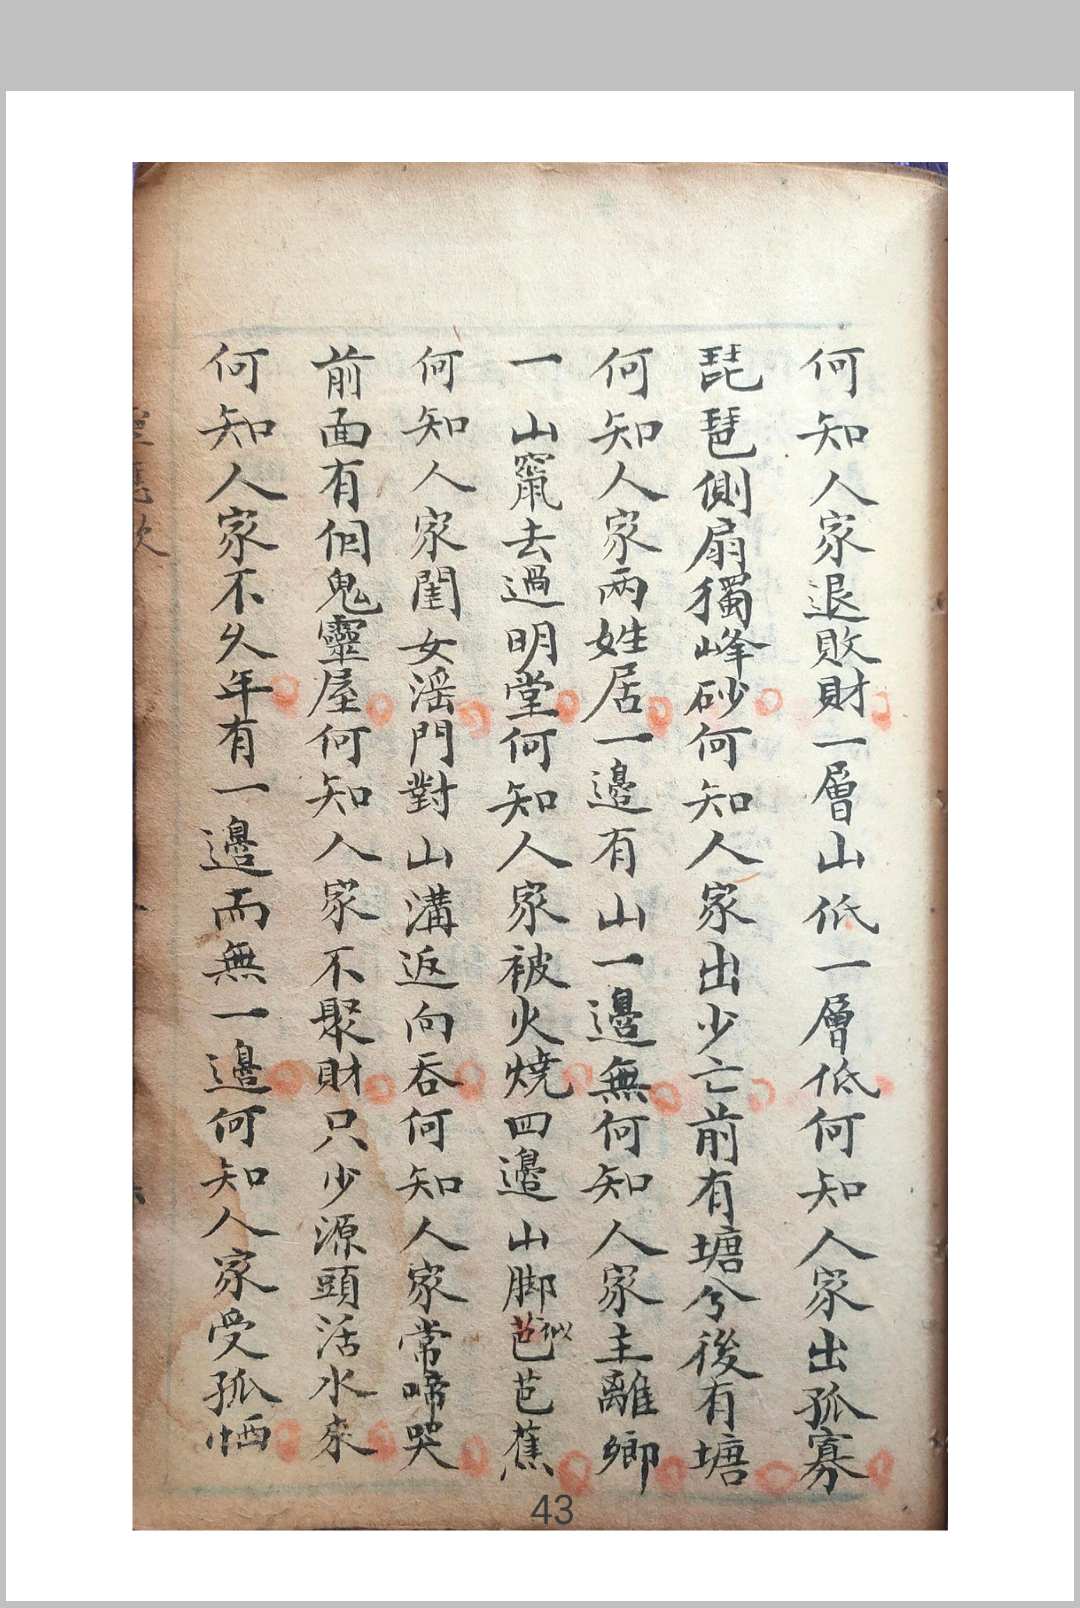 何知人家退敗財一層山低一層低何知人家出孤寡
琵琶側扇獨峰砂何知人家出少亡前有塘兮後有塘
何知人家兩姓居一邊有山一邊無何知人家主離鄉
一山竄去過明堂何知人家被火燒四邊山脚芭似芭蕉
何知人家閨女滛門對山溝返向吞何知人家常啼哭
前面有個鬼靈屋何知人家不聚財只少源頭活水來
何知人家不久年有一邊而無一邊何知人家受孤恓
43